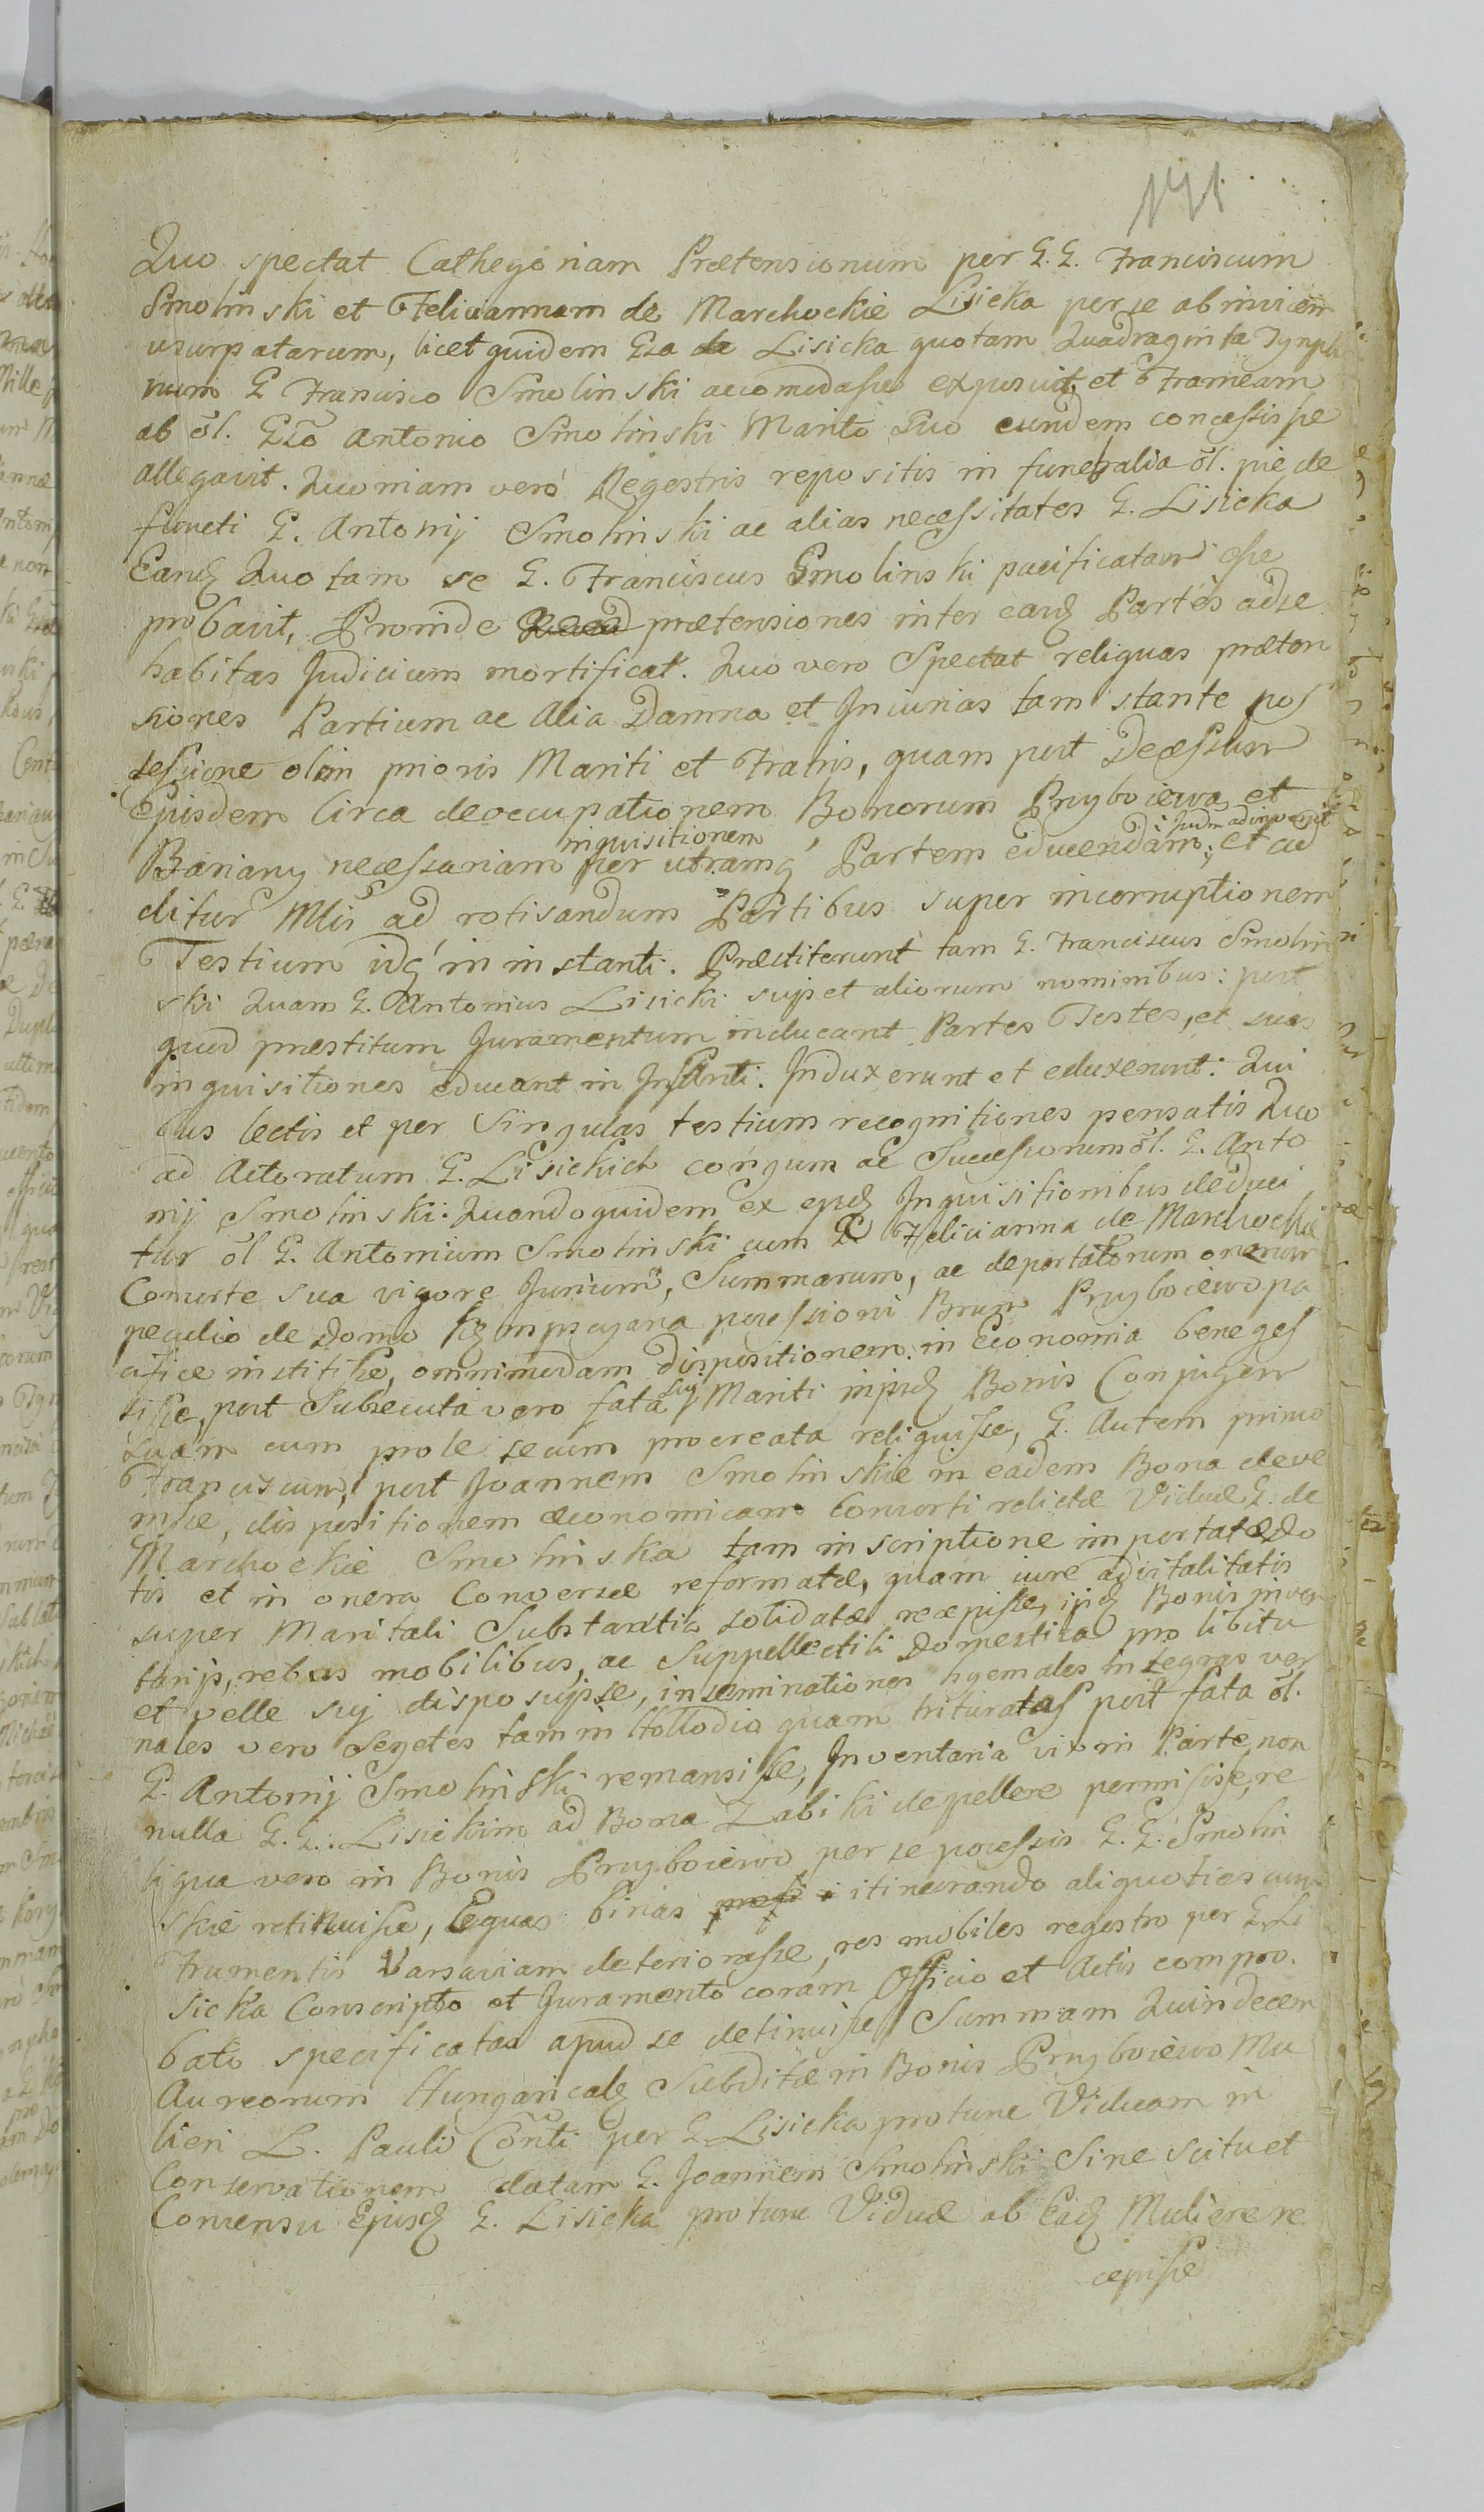 191
Quo spectat Cathegoriam Prætensionum per G. G. Franciscum
Smolinski et Feliciannam de Marchockie Lisicka per se ab invicem
usurpatarum, licet quidem Gsa de Lisicka quotam Quadraginta Tynpho
num G Francisco Smolinski accomodasse exposuit, et Frameam
ab ol. Gso Antonio Smolinski Marito Suo eundem concessisse
allegavit. Quoniam vero Regestris repositis in funebralia ol. pie de
functi G. Antonij Smolinski ac alias necessitates G. Lisicka
Eandq Quotam se G. Franciscus Smolinski pacificatam esse
probavit, Proinde prætensiones inter easdq Partes ad se
habitas Judicium mortificat. Quo vero Spectat reliquas præten
siones Partium ac Alia Damna et Iniurias tam stante pos
sessione olim prioris Mariti et Fratris, quam post Decessum
Ejusdem Circa deoccupationem Bonorum Pruyboiewo et
inquisitionem Judm adinvenit
Bariany necessariam per utramq Partem educendam; et ad
ditur Mlis ad rotisandum Partibus super incorruptionem
Testium idq in instanti. Præstiterunt tam G. Franciscus Smolin
ski Quam G. Antonius Lisicki suis et aliorum nominibus: post
quod præstitum Juramentum inducant Partes Testes, et suas
inquisitiones educant in Instanti. Induxerunt et eduxerunt: Qui
bus lectis et per Singulas testium recognitiones pensatis Quo
ad Actoratum G. Lisickich congum ac Successorum ol. G. Anto
nij Smolinski: Quandoquidem ex ejsdq Inquisitionibus deduci
tur ol G. Antonium Smolinski cum G Felicianna de Marchockie
Consorte sua vigore Jurium, Summarum, ac deportatorum onerum
peculio de Domo possessioni Bnum Pruyboiewo pa
cifice institisse, omnimodam dispositionem in Economia bene ges
suj
sisse, post Subsecuta vero fata Mariti in ipsdq Bonis Conjugem
suam cum prole secum procreata reliquisse, G. Autem primo
Franciscum, post Joannem Smolinskie in eadem Bona deve
nisse, dispositionem æconomicam Consorti relictæ Viduæ G. de
Marchockie Smolinska tam inscriptione importatæ Do
tis et in onera Conversæ reformatæ, quam iure advitalitatis
super Maritali Substantia solidatæ recepisse, ijsdq Bonis inven
tarijs, rebus mobilibus, ac Suppellectili Domestica pro libitu
et velle suj disposuisse, inseminationes hyemales integras ver
nales vero Segetes tam in Hollodia quam trituratas post fata ol.
G. Antonij Smolinski remansisse, Inventaria vix in Parte non
nulla G. G. Lisickim ad Bona Zabiki depellere permisisse, re
liqua vero in Bonis Pruyboiewo per se possessis G. G. Smolin
skie retinuisse, Equas binas itinerando aliquoties cum
Frumentis Varsaviam deteriorasse, res mobiles regestro per G. Li
sicka Conscripto et Juramento coram Officio et Actis compro.
bato specificatas apud se detinuisse, Summam Quindecem
Aureorum Hungaricalq Subditæ in Bonis Pruyboiewo Mu
lieri L. Pauli Conti per G Lisicka pro tunc Viduam in
Conservationem datam G. Joannem Smolinski Sine scitu et
Consensu Ejusdq G. Lisicka pro tunc Viduæ ab Eadq Muliere re
cepisse